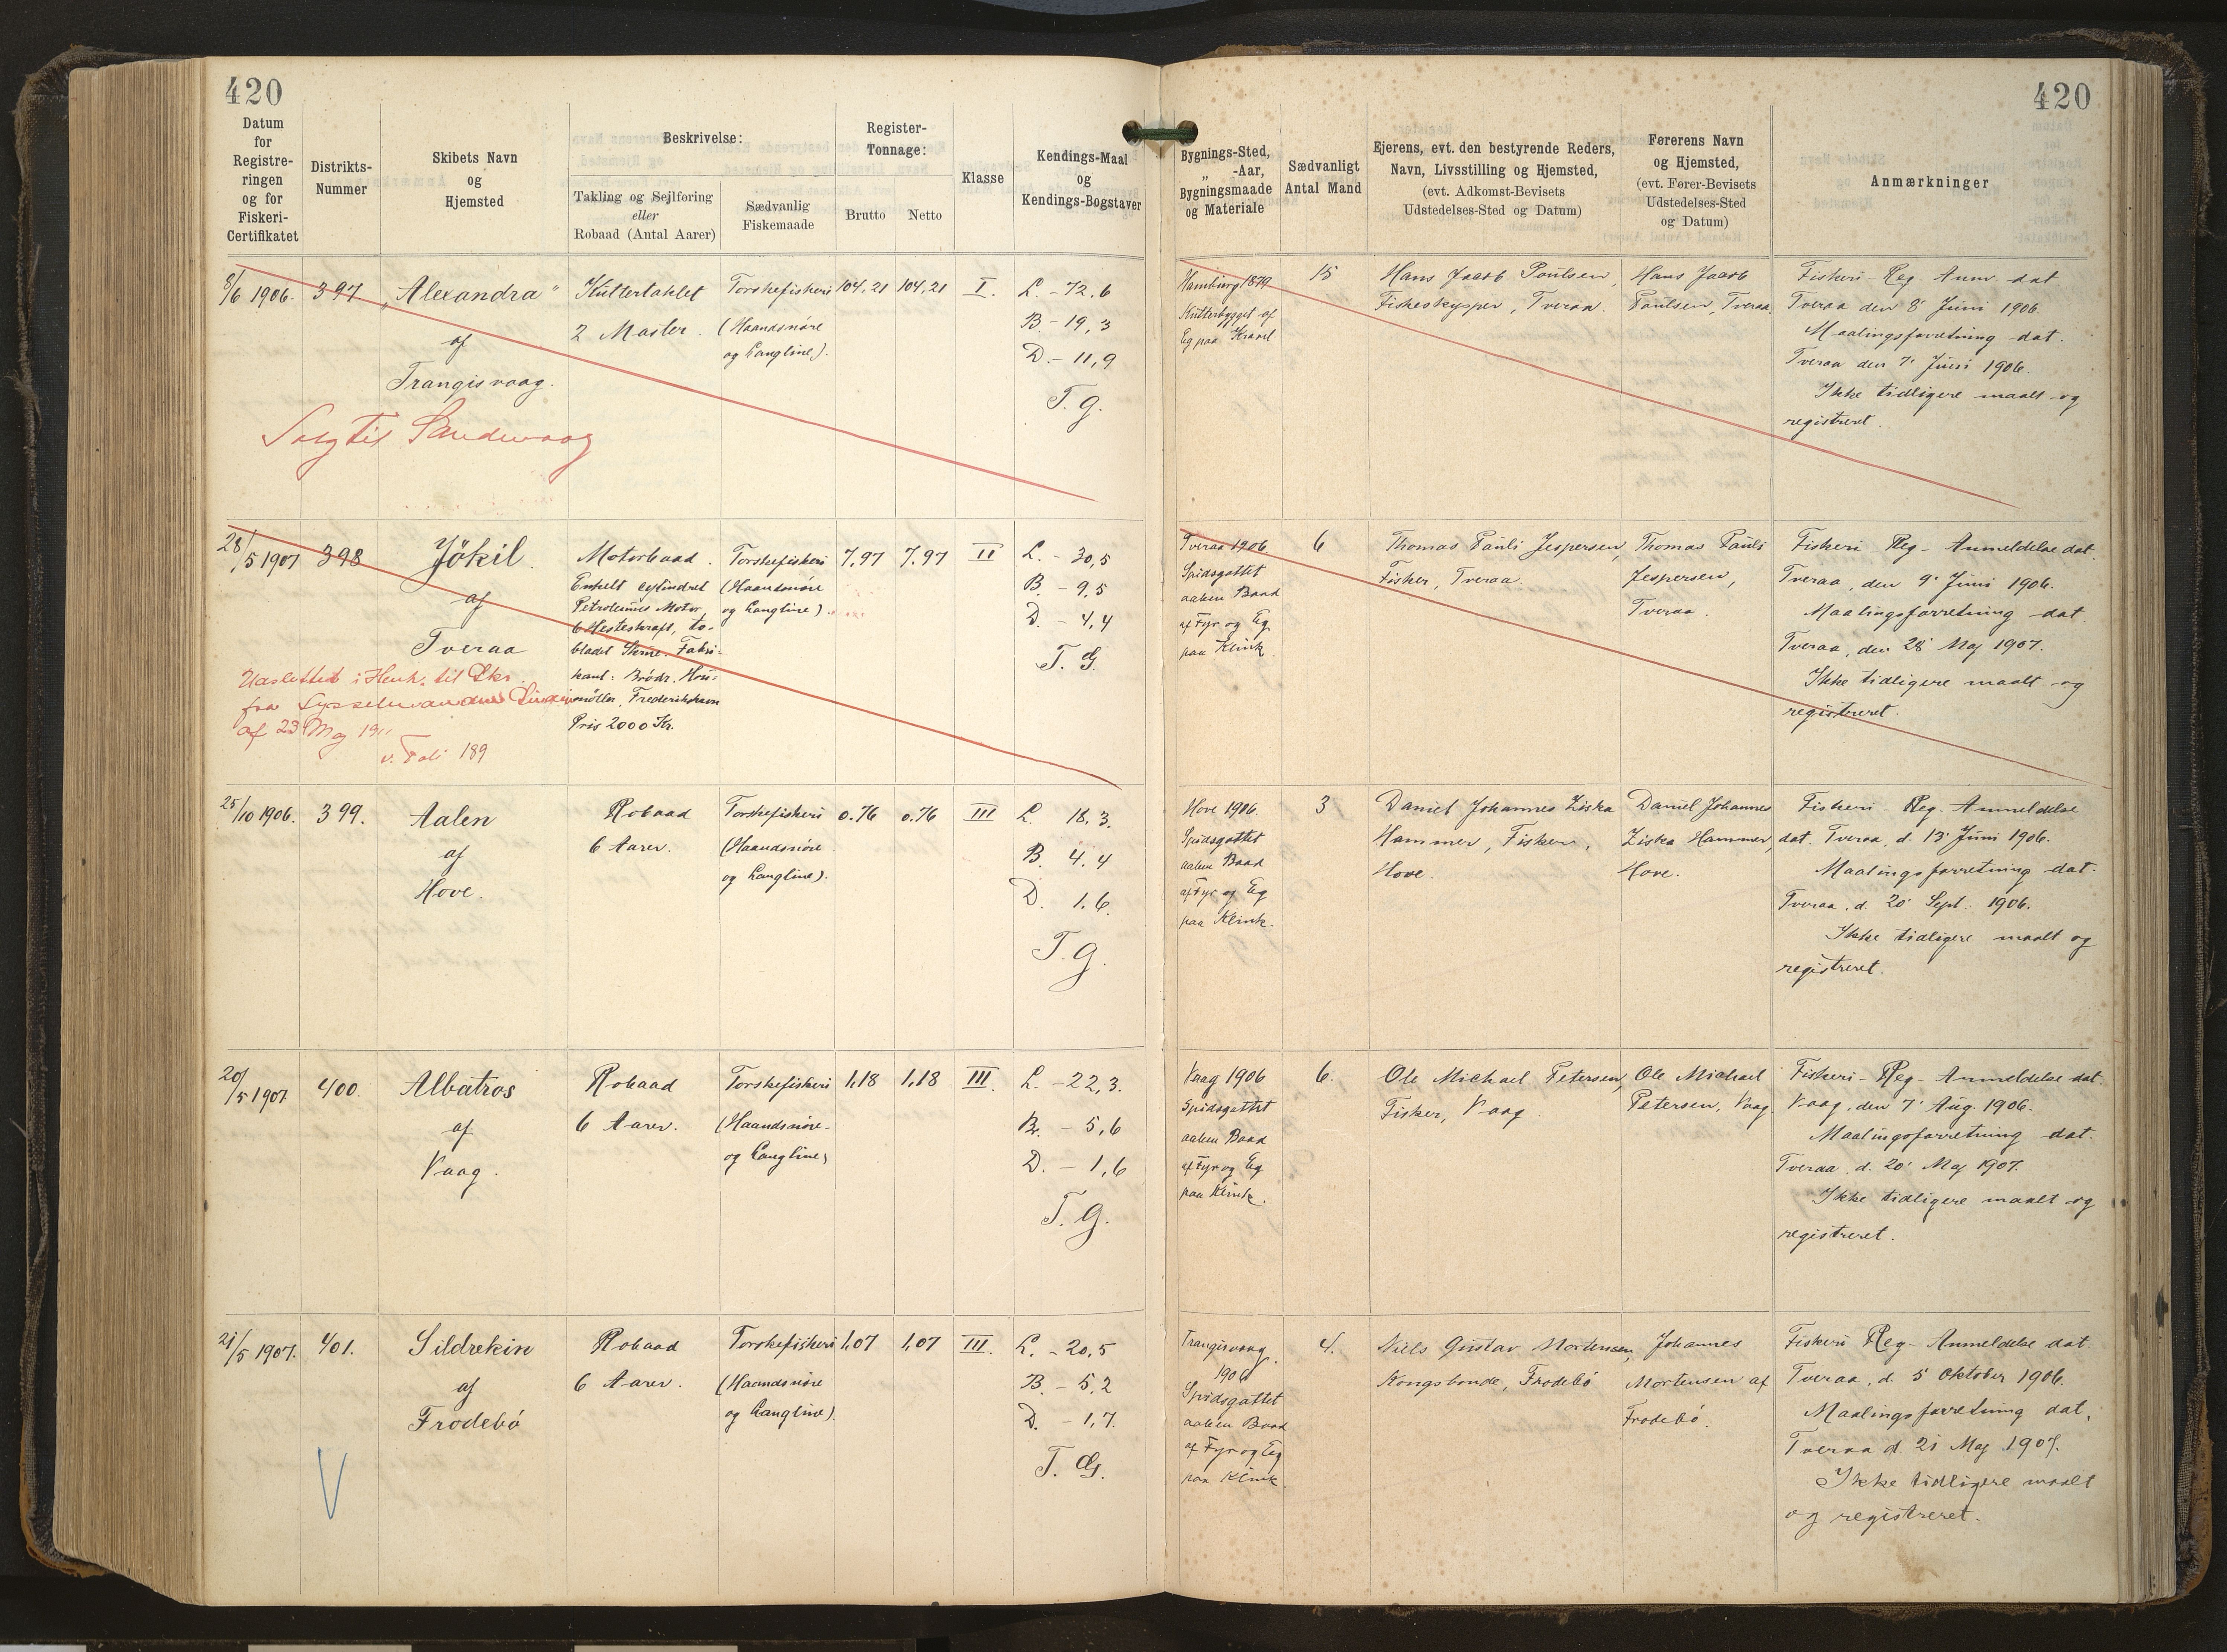 420
420
Datum
for
Registre-
ringen
og for
Fiskeri-
Certifikatet
Distrikts-
Nummer
Skibets Navn
og
Hjemsted
Beskrivelse:
Takling og Sejlføring
eller
Robaad (Antal Aarer)
Sædvanlig
Fiskemaade
Register-
Tonnage:
Brutto
Netto
Klasse
Kendings-Maal
og
Kendings-Bogstaver
Bygnings-Sted,
„ -Aar,
Bygningsmaade
og Materiale
Sædvanligt
Antal Mand
Ejerens, evt. den bestyrende Reders,
Navn, Livsstilling og Hjemsted,
(evt. Adkomst-Bevisets
Udstedelses-Sted og Datum)
Førerens Navn
og Hjemsted,
(evt. Fører-Bevisets
Udstedelses-Sted
og Datum)
Anmærkninger
8/6 1906.
397
„Alexandra"
af
Trangisvaag.
Solg til Sandevaag
Kuttertaklet
2 Master.
Torskefiskeri
(Haandsnøre
og Langline).
104,21
104,21
I.
L. - 72,6
B. - 19,3
D. - 11,9
T. G.
Hamburg 1879
Kutterbygget af
Eg paa Kravel
15
Hans Jacob Poulsen,
Fiskeskipper, Tveraa.
Hans Jacob
Poulsen, Tveraa.
Fiskeri-Reg. Anm. dat
Tveraa den 8' Juni 1906.
Maalingsforretning dat.
Tveraa den 7' Juni 1906.
Ikke tidligere maalt og
registreret.
28/5 1907
398
Jökil.
af
Tveraa
Udslettet i Henh. til Skr.
fra Sysselmanden
af 23 Maj 19
v. Fol. 189
Motorbaad.
Enkelt cylindret
Petroleums Motor,
6 Hesteskraft, to-
bladet Skrue. Fabri-
kant: Brødr. Hou-
møller, Frederikshavn
Pris 2000 Kr.
Torskefiskeri
(Haandsnøre
og Langline).
7,97
7,97
II
L. - 30,5
B. - 9,5
D. - 4,4
T. G.
Tveraa 1906
Spidsgattet
aaben Baad
af Fyr og Eg
paa Klink.
6
Thomas Pauli Jespersen,
Fisker, Tveraa.
Thomas Pauli
Jespersen,
Tveraa.
Fiskeri-Reg-Anmeldelse dat.
Tveraa, den 9' Juni 1906.
Maalingsforretning dat.
Tveraa, den 28' Maj 1907.
Ikke tidligere maalt og
registreret.
25/10 1906.
399.
Aalen
af
Hove.
Robaad
6 Aarer.
Torskefiskeri
(Haandsnøre
og Langline).
0.76
0.76
III
L. 18,3.
B. 4,4
D. 1,6.
T. G.
Hove 1906.
Spidsgattet
aaben Baad
af Fyr og Eg
paa Klink.
3
Daniel Johannes Ziska
Hammer, Fisker,
Hove.
Daniel Johannes
Ziska Hammer,
Hove.
Fiskeri-Reg. Anmeldelse
dat. Tveraa, d. 13' Juni 1906.
Maalingsforretning dat.
Tveraa, d. 20' Sept. 1906.
Ikke tidligere maalt og
registreret.
20/5 1907
400.
Albatros
af
Vaag.
Robaad
6 Aarer.
Torskefiskeri
(Haandsnøre-
og Langline)
1,18
1,18
III.
L. - 22,3.
Br. - 5,6
D. - 1,6
T. G.
Vaag 1906
Spidsgattet
aaben Baad
af Fyr og Eg
paa Klink.
6.
Ole Michael Petersen,
Fisker, Vaag.
Ole Michael
Petersen, Vaag.
Fiskeri-Reg-Anmeldelse dat.
Vaag, den 7' Aug. 1906.
Maalingsforretning dat.
Tveraa d. 20' Maj 1907.
Ikke tidligere maalt og
registreret.
21/5 1907.
401.
Sildrekin
af
Frodebö
V
Robaad
6 Aarer.
Torskefiskeri
(Haandsnøre
og Langline)
1,07
1,07
III.
L. - 20,5
B. - 5,2
D. - 1,7.
T. G.
Trangisvaag.
1906
Spidsgattet
aaben Baad
af Fyr og Eg
paa Klink.
4.
Niels Gustav Mortensen,
Kongsbonde, Frodebö
Johannes
Mortensen af
Frodebö.
Fiskeri Reg-Anmeldelse dat.
Tveraa, d. 5' Oktober 1906.
Maalingsforretning dat.
Tveraa d. 21 Maj 1907.
Ikke tidligere maalt
og registreret.